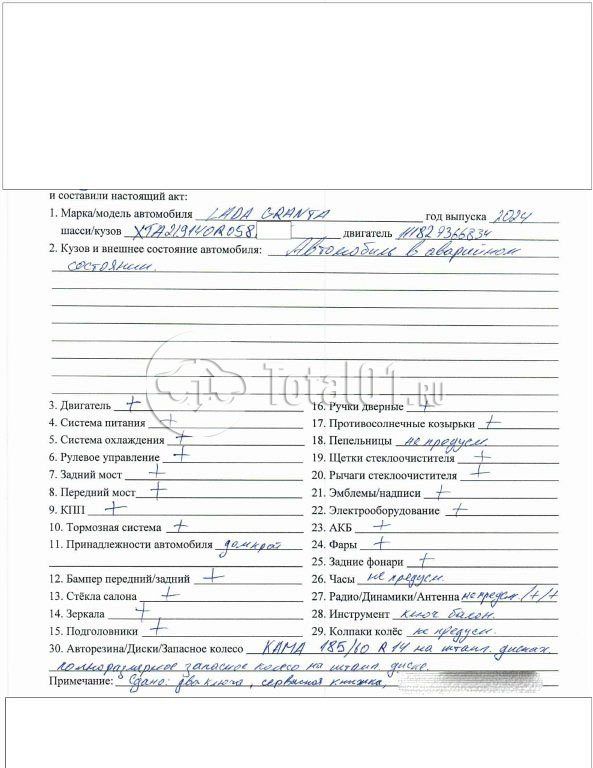 и составили настоящий акт:
1. Марка/модель автомобиля LADA GRANTA год выпуска 2024
шасси/кузов XTA219140R058 двигатель 11182 7366834
2. Кузов и внешнее состояние автомобиля: Автомобиль в аварийном
состоянии.
Total01.RU
3. Двигатель +
16. Ручки дверные +
4. Система питания +
17. Противосолнечные козырьки +
5. Система охлаждения +
18. Пепельницы не предусм.
6. Рулевое управление +
19. Щетки стеклоочистителя +
7. Задний мост +
20. Рычаги стеклоочистителя +
8. Передний мост +
21. Эмблемы/надписи +
9. КПП +
22. Электрооборудование +
10. Тормозная система +
23. АКБ +
11. Принадлежности автомобиля домкрат
24. Фары +
25. Задние фонари +
12. Бампер передний/задний +
26. Часы не предусм.
13. Стёкла салона +
27. Радио/Динамики/Антенна не предусм. /+/+
14. Зеркала +
28. Инструмент ключ балон.
15. Подголовники +
29. Колпаки колёс не предусм.
30. Авторезина/Диски/Запасное колесо КАМА 185/60 R14 на штамп. дисках
полноразмерное запасное колесо на штамп. диске.
Примечание: Сдано: два ключа, сервисная книжка,